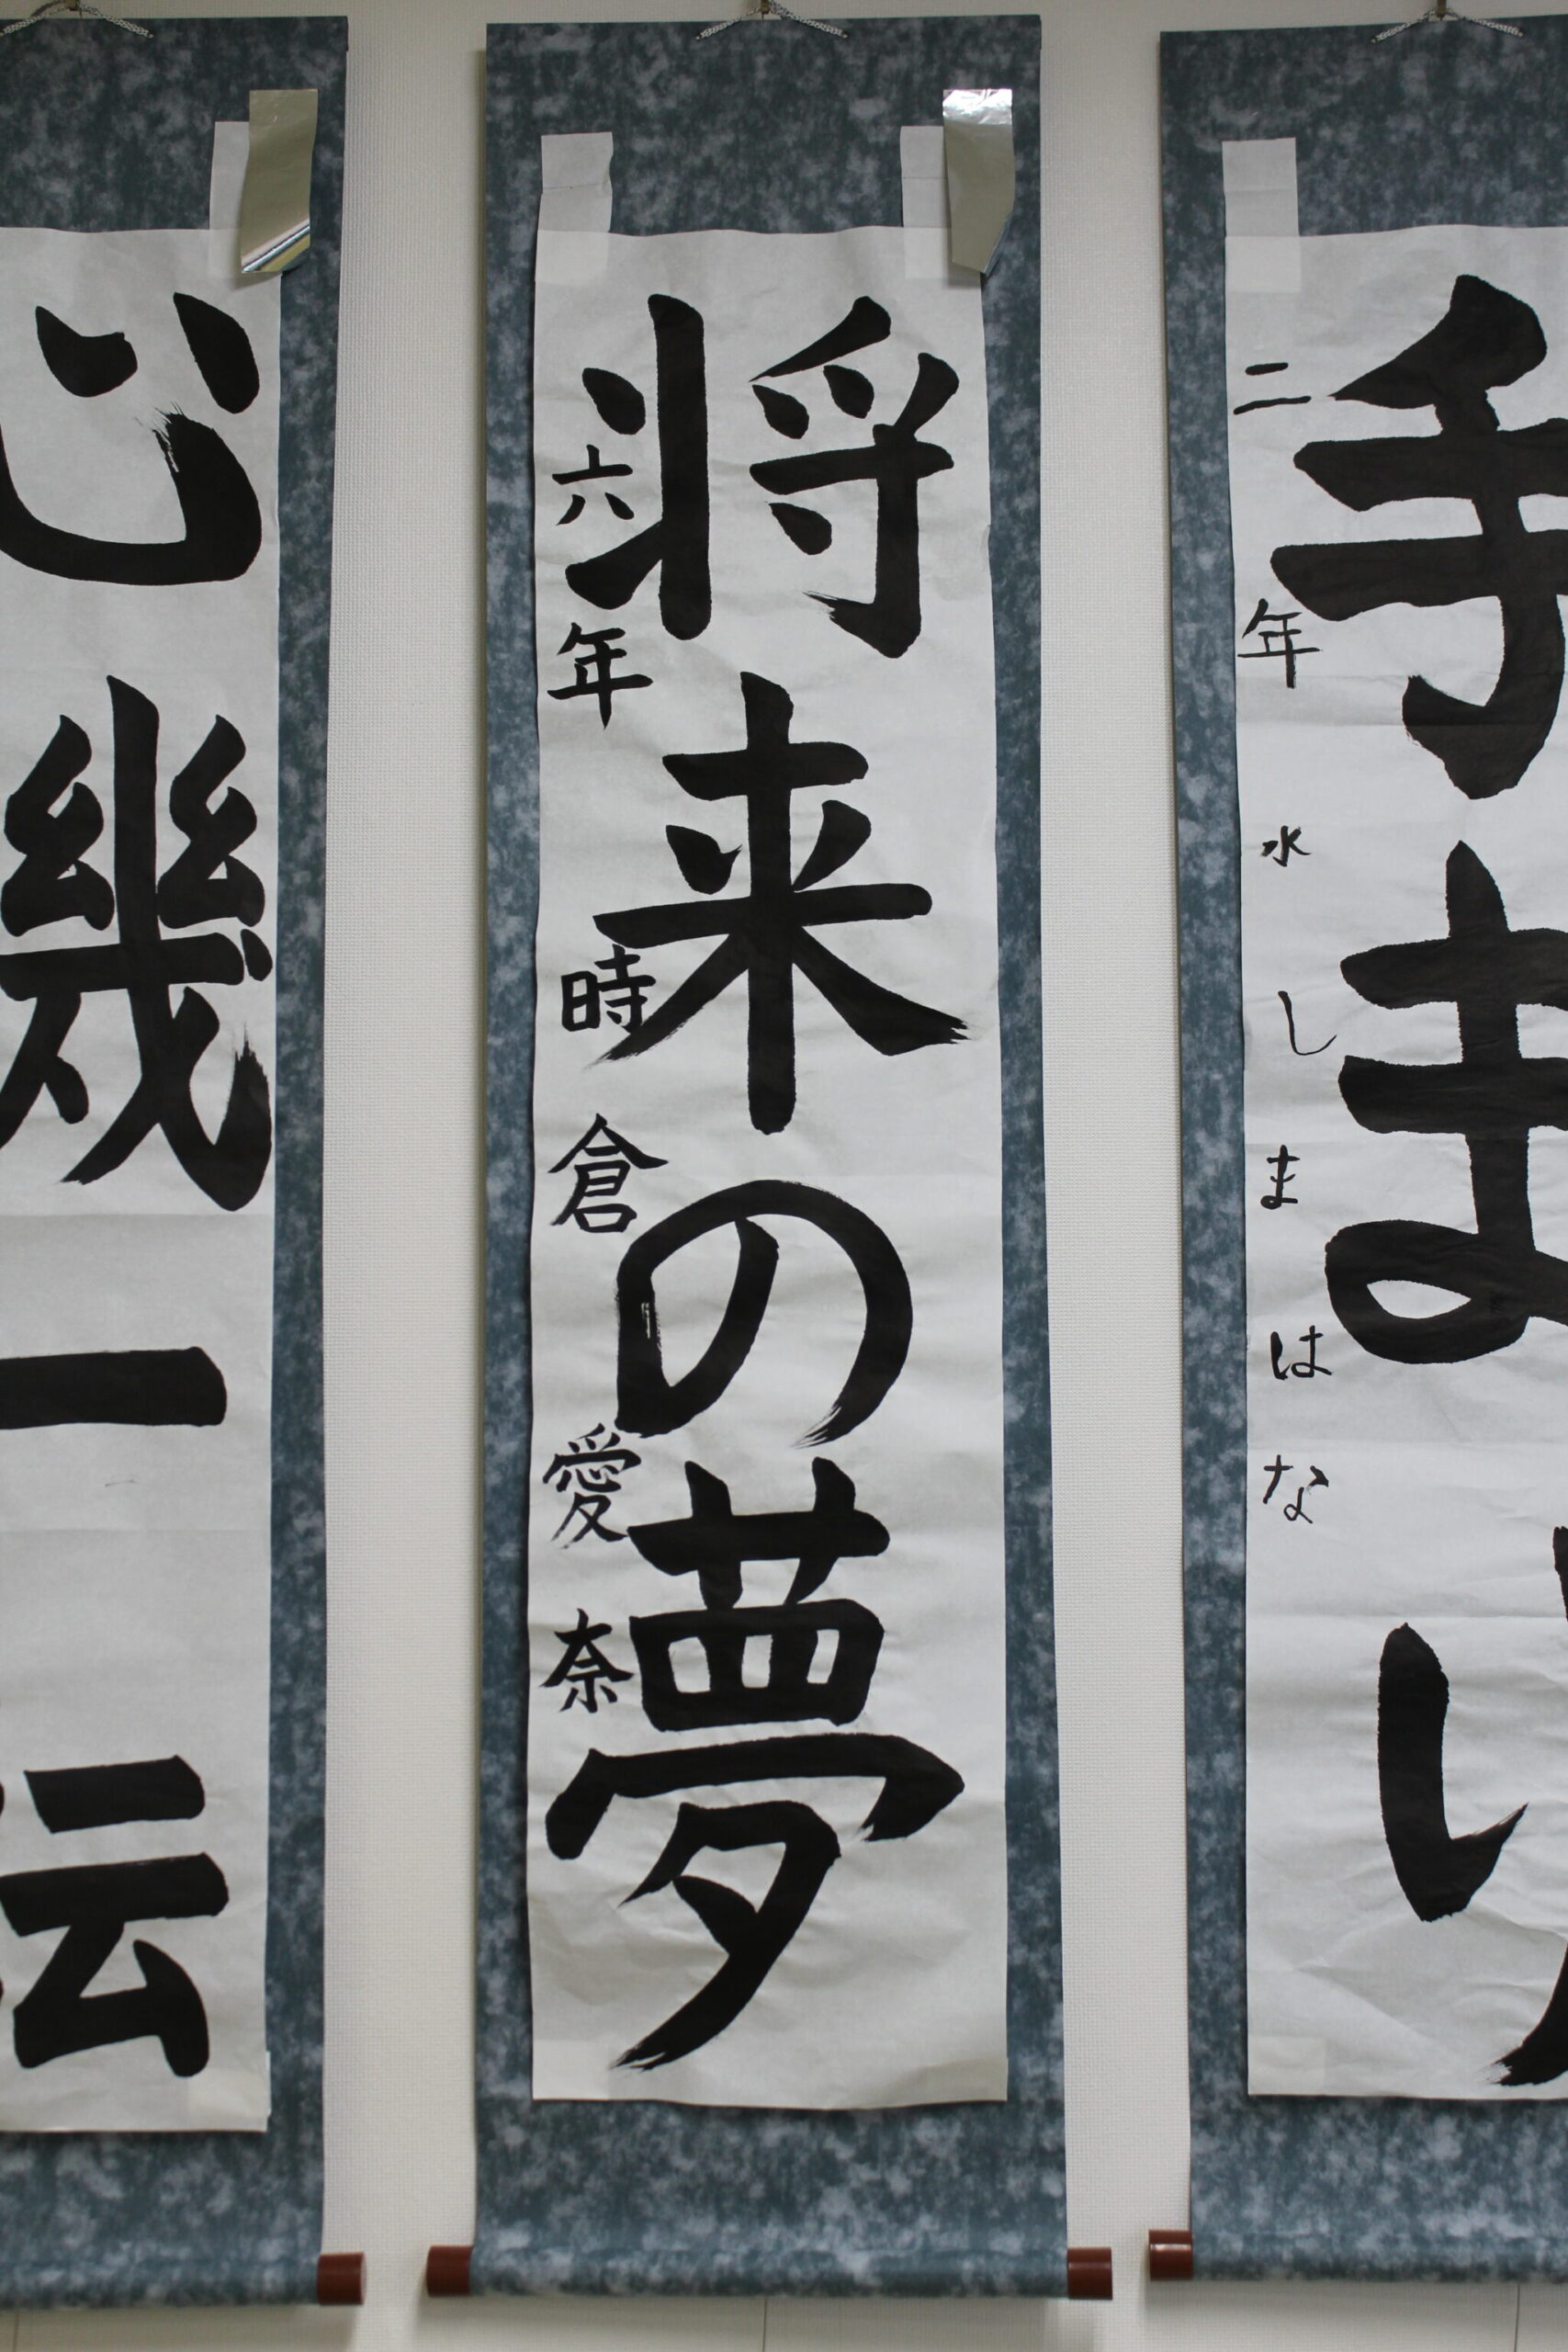 手まり
二年 水しまはな
将来の夢
六年 時倉 愛奈
心機一転